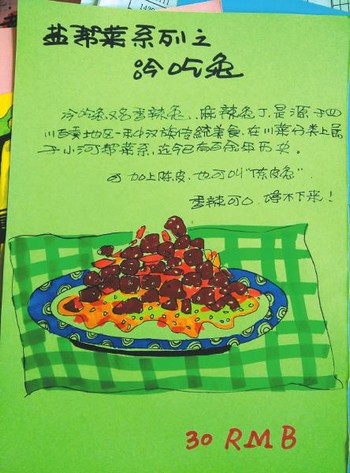 盐帮菜系列之
冷吃兔
冷吃兔又名香辣兔、麻辣兔丁,是源于四
川自贡地区一种汉族传统美食,在川菜分类上属
于小河帮菜系,迄今已有百余年历史。
可加上陈皮,也可叫“陈皮兔”
香辣可口,停不下来!
30 RMB